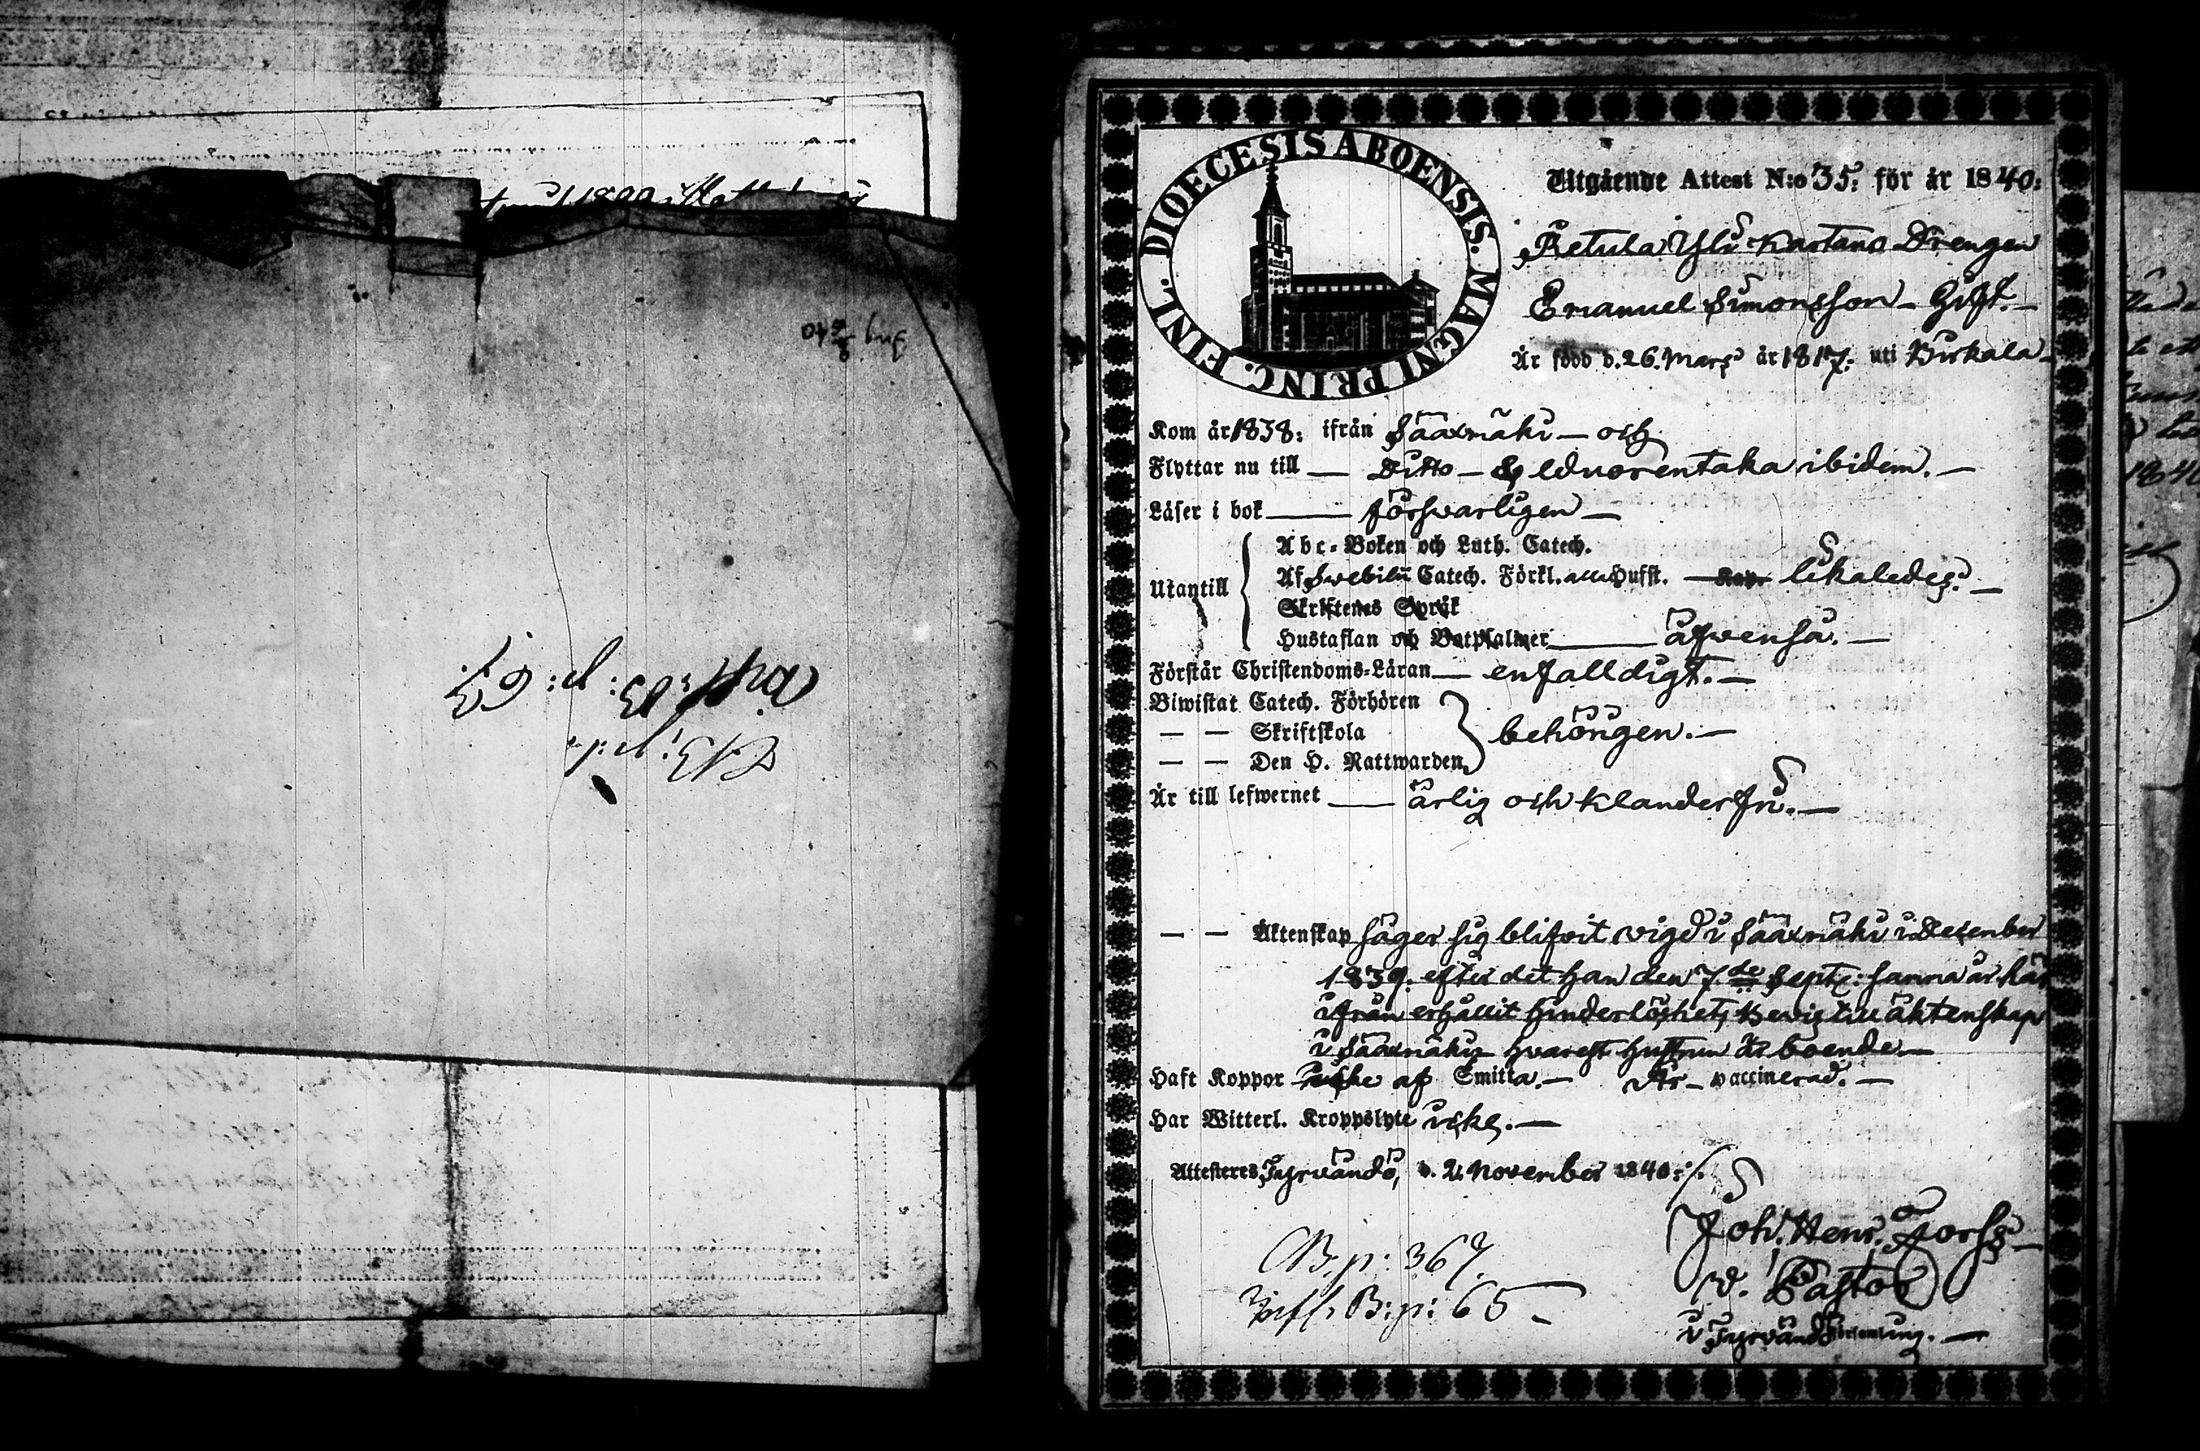 Ing 3/6 40
Inft: B: p: 65.
DIOECESIS ABOENSIS. MAGNI PRINC. FINL.
Utgående Attest N:o 35: för år 1840:
Retula Yli Kartano Drengen
Emanuel Simonsson – Gift. –
Är född d. 26. Mars år 1817: uti Birkala –
Kom år 1838: ifrån Sääxmäki – och
Flyttar nu till – Ditto – ibidem. –
Läser i bok – försvarligen –
Utantill
Abc-Boken och Luth. Catech.
Af Swebilii Catech. Förkl. alla Hufst. – likaledes. –
Skriftenes Språk
Hustaflan och Botpsalmer – äfvenså. –
Förstår Christendoms-Läran – enfalldigt. –
Biwistat Catech. Förhören
— — Skriftskola
— — Den H. Nattwarden
behörigen. –
Är till lefwernet – ärlig och klanderfri. –
— — Äktenskap säger sig blifvit vigd i Sääxmäki i December
1839. efter det han den 7de Sept: samma år här
ifrån erhållit hinderlöshets Bevis till äktenskap
i Sääxmäki hvarest hustrun är boende. –
Haft Koppor icke af Smitta. – Är – vaccinerad. –
Har Witterl. Kroppslyte icke. –
Attesteres, Tyrvändö, d. 2. November 1840:
Joh. Henr. Forss –
v. Pastor
i Tyrvändö Församling. –
B. p: 367.
Inft. B: p: 65 –